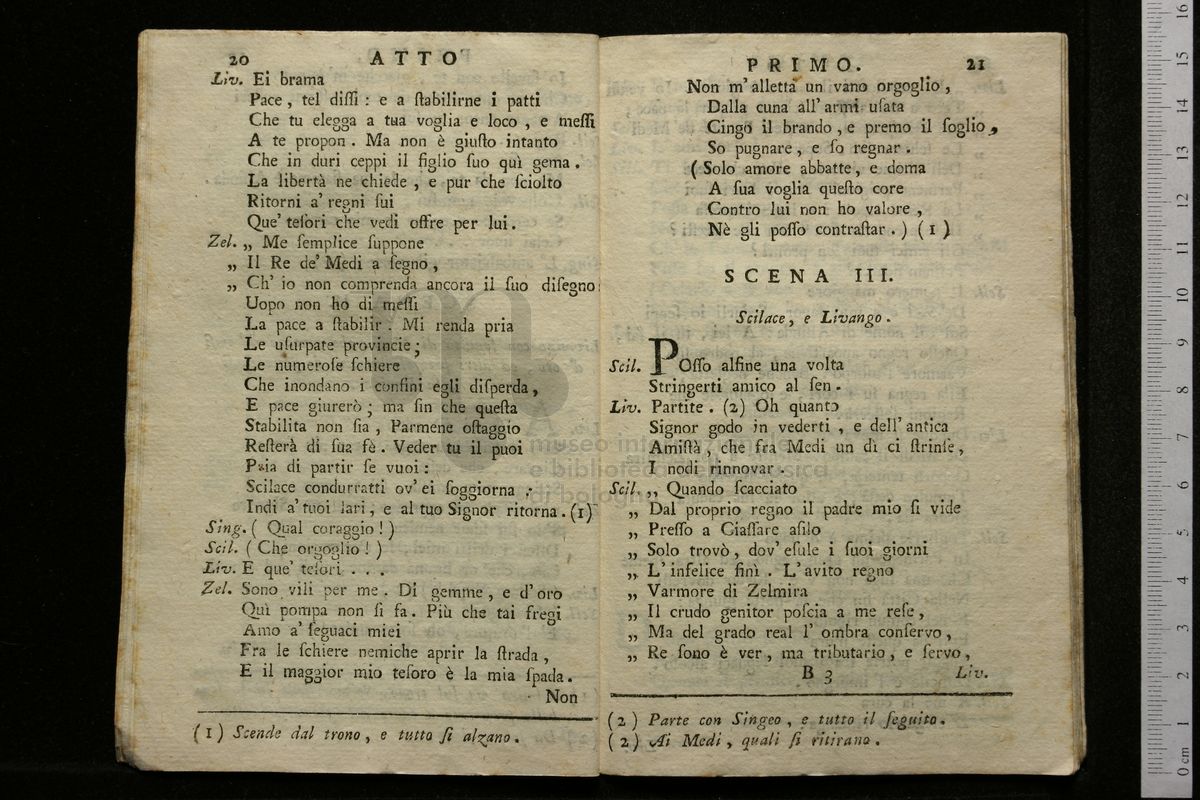 20 ATTO
Liv. Ei brama
Pace, tel diſſi : e a ſtabilirne i patti
Che tu elegga a tua voglia e loco, e meſſi
A te propon. Ma non è giuſto intanto
Che in duri ceppi il figlio ſuo quì gema.
La libertà ne chiede, e pur che ſciolto
Ritorni a' regni ſui
Que' teſori che vedi offre per lui.
Zel. „ Me ſemplice ſuppone
„ Il Re de' Medi a ſegno,
„ Ch' io non comprenda ancora il ſuo diſegno:
Uopo non ho di meſſi
La pace a ſtabilir. Mi renda pria
Le uſurpate provincie;
Le numeroſe ſchiere
Che inondano i confini egli diſperda,
E pace giurerò; ma fin che queſta
Stabilita non ſia, Parmene oſtaggio
Reſterà di ſua fè. Veder tu il puoi
Pria di partir ſe vuoi:
Scilace condurratti ov' ei ſoggiorna;
Indi a' tuoi lari, e al tuo Signor ritorna. (1)
Sing. ( Qual coraggio! )
Scil. ( Che orgoglio! )
Liv. E que' teſori . . .
Zel. Sono vili per me. Di gemme, e d'oro
Quì pompa non ſi fa. Più che tai fregi
Amo a' ſeguaci miei
Fra le ſchiere nemiche aprir la ſtrada,
E il maggior mio teſoro è la mia ſpada.
Non
(1) Scende dal trono, e tutto ſi alzano.
PRIMO. 21
Non m'alletta un vano orgoglio,
Dalla cuna all'armi uſata
Cingo il brando, e premo il ſoglio,
So pugnare, e ſo regnar.
( Solo amore abbatte, e doma
A ſua voglia queſto core
Contro lui non ho valore,
Nè gli poſſo contraſtar. ) (1)
SCENA III.
Scilace, e Livango.
Scil. POſſo alfine una volta
Stringerti amico al ſen.
Liv. Partite. (2) Oh quanto
Signor godo in vederti, e dell'antica
Amiſtà, che fra Medi un dì ci ſtrinſe,
I nodi rinnovar.
Scil. „ Quando ſcacciato
„ Dal proprio regno il padre mio ſi vide
„ Preſſo a Ciaſſare aſilo
„ Solo trovò, dov'eſule i ſuoi giorni
„ L'infelice finì. L'avito regno
„ Varmore di Zelmira
„ Il crudo genitor poſcia a me reſe,
„ Ma del grado real l' ombra conſervo,
„ Re ſono è ver, ma tributario, e ſervo,
B 3 Liv.
(2) Parte con Singeo, e tutto il ſeguito.
(2) Ai Medi, quali ſi ritirano.